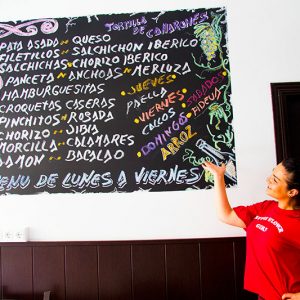 TORTILLA
DE CAMARONES
PATA ASADO - QUESO
FILETILLOS - SALCHICHON IBERICO
SALCHICHAS - CHORIZO IBERICO
PANCETA - ANCHOAS - MERLUZA
HAMBURGUESITAS
CROQUETAS CASERAS
PINCHITOS - ROSADA
CHORIZO - JIBIA
MORCILLA - CALAMARES
JAMON - BACALAO
JUEVES
PAELLA
VIERNES
CALLOS
DOMINGOS
ARROZ
SABADOS
FIDEUA
MENU DE LUNES A VIERNES